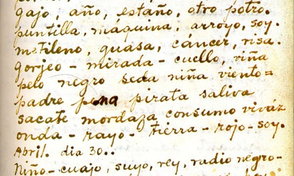 gajo, año, estaño, otro potro.
puntilla, máquina, arroyo, soy.
metileno, guasa, cáncer, risa.
Gorjeo - mirada - cuello, riña
pelo negro seda niña viento -
padre pena pirata saliva
sacate mordaza consumo vivaz
onda - rayo - tierra - rojo - soy.
Abril. dia 30..
Niño - cuajo, suyo, rey, radio negro -